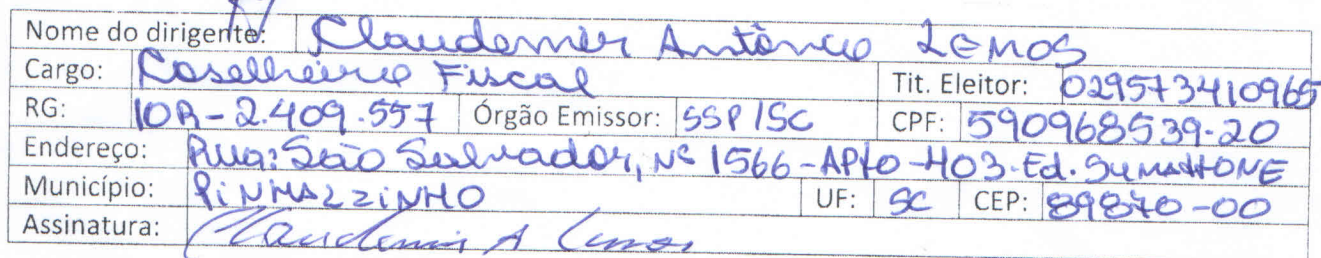 Nome do dirigente: Claudemir Antônio LEMOS
Cargo: Coselheiro Fiscal Tit. Eleitor: 029573410965
RG: 10R-2.409.557 Órgão Emissor: SSP/SC CPF: 590968539-20
Endereço: Rua: São Salvador, Nº 1566-APtO-403-Ed.
Município: PiNHALZiNHO UF: SC CEP: 89870-00
Assinatura: Claudemir A Lemos